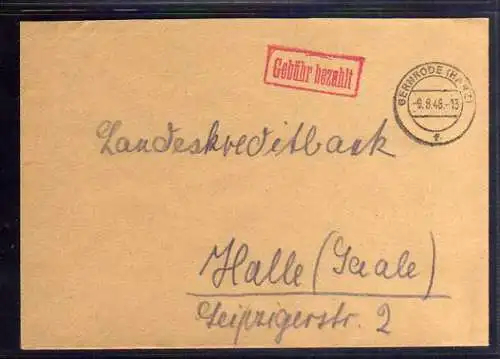 Gebühr bezahlt
GERNRODE (HARZ)
-9.8.46.-13
f
Landeskreditbank
Halle (Saale)
Leipzigerstr. 2